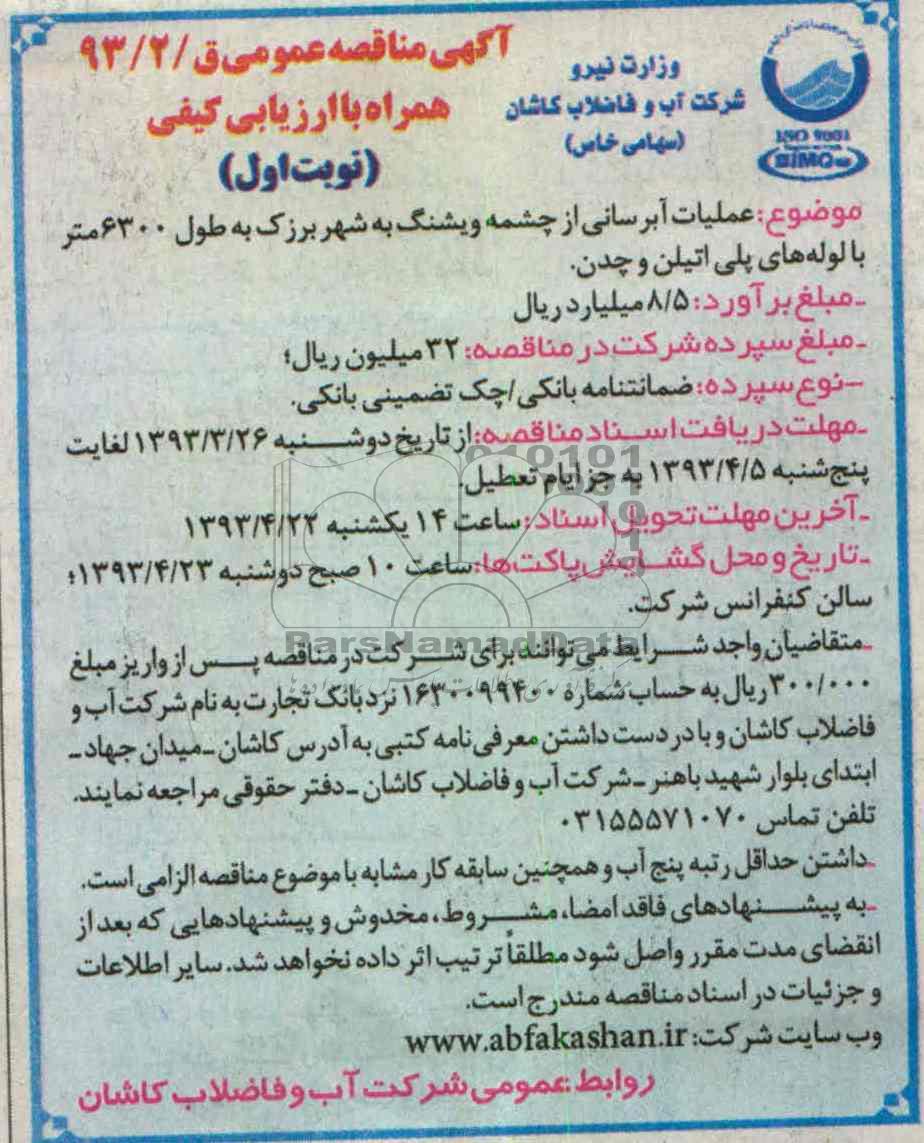 آگهی مناقصه عمومی ق /۹۳/۲
همراه با ارزیابی کیفی
(نوبت اول)
وزارت نیرو
شرکت آب و فاضلاب کاشان
(سهامی خاص)
ISO 9001
موضوع: عملیات آبرسانی از چشمه ویشنگ به شهر برزک به طول ۶۳۰۰ متر
با لوله‌های پلی اتیلن و چدن.
-مبلغ برآورد: ۸/۵ میلیارد ریال
-مبلغ سپرده شرکت در مناقصه: ۳۲ میلیون ریال؛
-نوع سپرده: ضمانتنامه بانکی/چک تضمینی بانکی.
-مهلت دریافت اسناد مناقصه: از تاریخ دوشنبه ۱۳۹۳/۳/۲۶ لغایت
پنج‌شنبه ۱۳۹۳/۴/۵ به جز ایام تعطیل.
-آخرین مهلت تحویل اسناد: ساعت ۱۴ یکشنبه ۱۳۹۳/۴/۲۲
-تاریخ و محل گشایش پاکت‌ها: ساعت ۱۰ صبح دوشنبه ۱۳۹۳/۴/۲۳؛
سالن کنفرانس شرکت.
-متقاضیان واجد شرایط می‌توانند برای شرکت در مناقصه پس از واریز مبلغ
۳۰۰/۰۰۰ ریال به حساب شماره ۱۶۳۰۰۹۹۴۰۰ نزد بانک تجارت به نام شرکت آب و
فاضلاب کاشان و با در دست داشتن معرفی نامه کتبی به آدرس کاشان -میدان جهاد-
ابتدای بلوار شهید باهنر -شرکت آب و فاضلاب کاشان -دفتر حقوقی مراجعه نمایند.
تلفن تماس ۰۳۱۵۵۵۷۱۰۷۰
-داشتن حداقل رتبه پنج آب و همچنین سابقه کار مشابه با موضوع مناقصه الزامی است.
-به پیشنهادهای فاقد امضا، مشروط، مخدوش و پیشنهادهایی که بعد از
انقضای مدت مقرر واصل شود مطلقاً ترتیب اثر داده نخواهد شد. سایر اطلاعات
و جزئیات در اسناد مناقصه مندرج است.
وب سایت شرکت: www.abfakashan.ir
روابط عمومی شرکت آب و فاضلاب کاشان
ParsNamadData